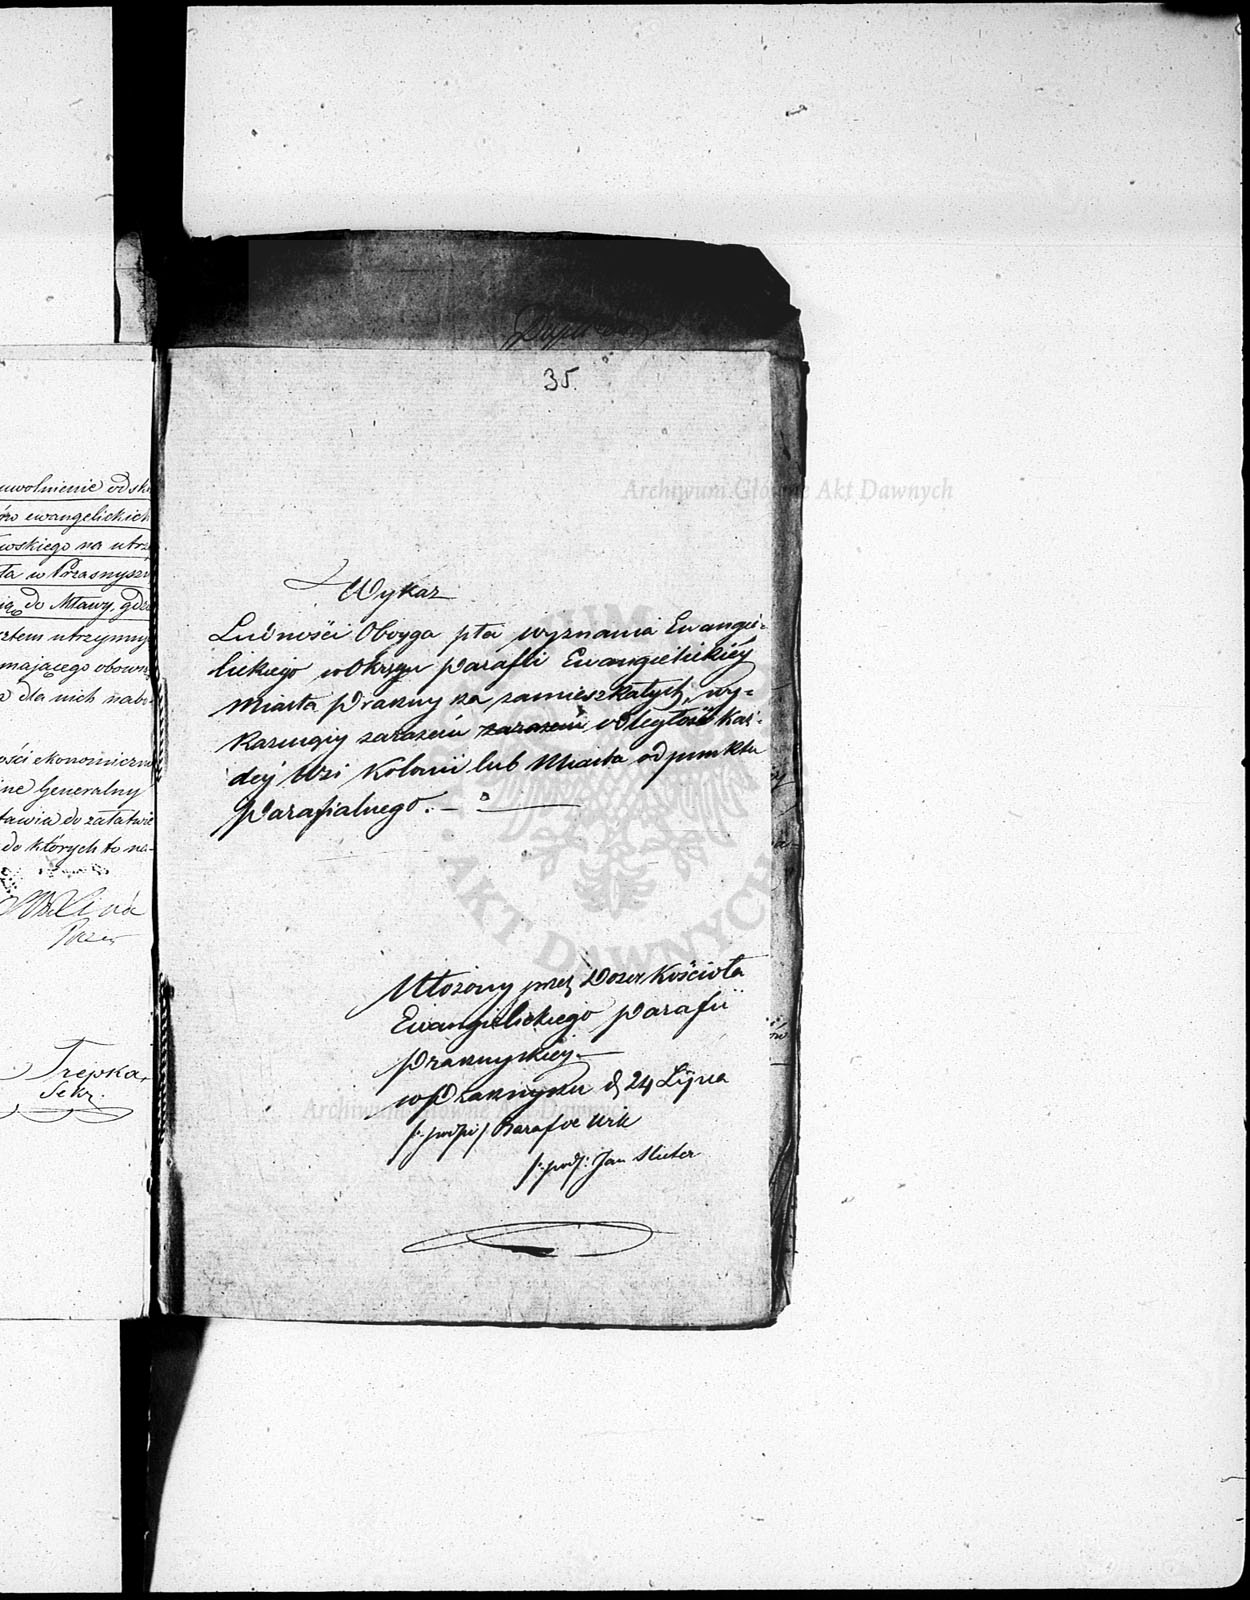 uwolnienie od sk
ewangelickich
wskiego na utrz
ta w Przasnyszu
ią do Mławy, gdz
sztem utrzymy
mającego obowi
dla nich nabo
ości ekonomiczn
ne Generalny
tawia do załatwie
do których to na-
Trepka
Sekr.
35.
Wykaz
Ludności Oboyga płci wyznania Ewangie-
lickiego w Okręgu parafii Ewangielickiéy
Miasta Przasnysza zamieszkałych, wy-
kazuiący zarazem zarazem odległość każ-
déy Wsi Kolonii lub Miasta od punktu
parafialnego. —
Ułożony przez Dozor Kościoła
Ewangielickiego parafii
Przasnyskiéy. —
w Przasnyszu d. 24 Lipca
/: podpis /
/: pod /: Jan
Archiwum Główne Akt Dawnych
AKT DAWNYCH
Archiwum Główne Akt Dawnych